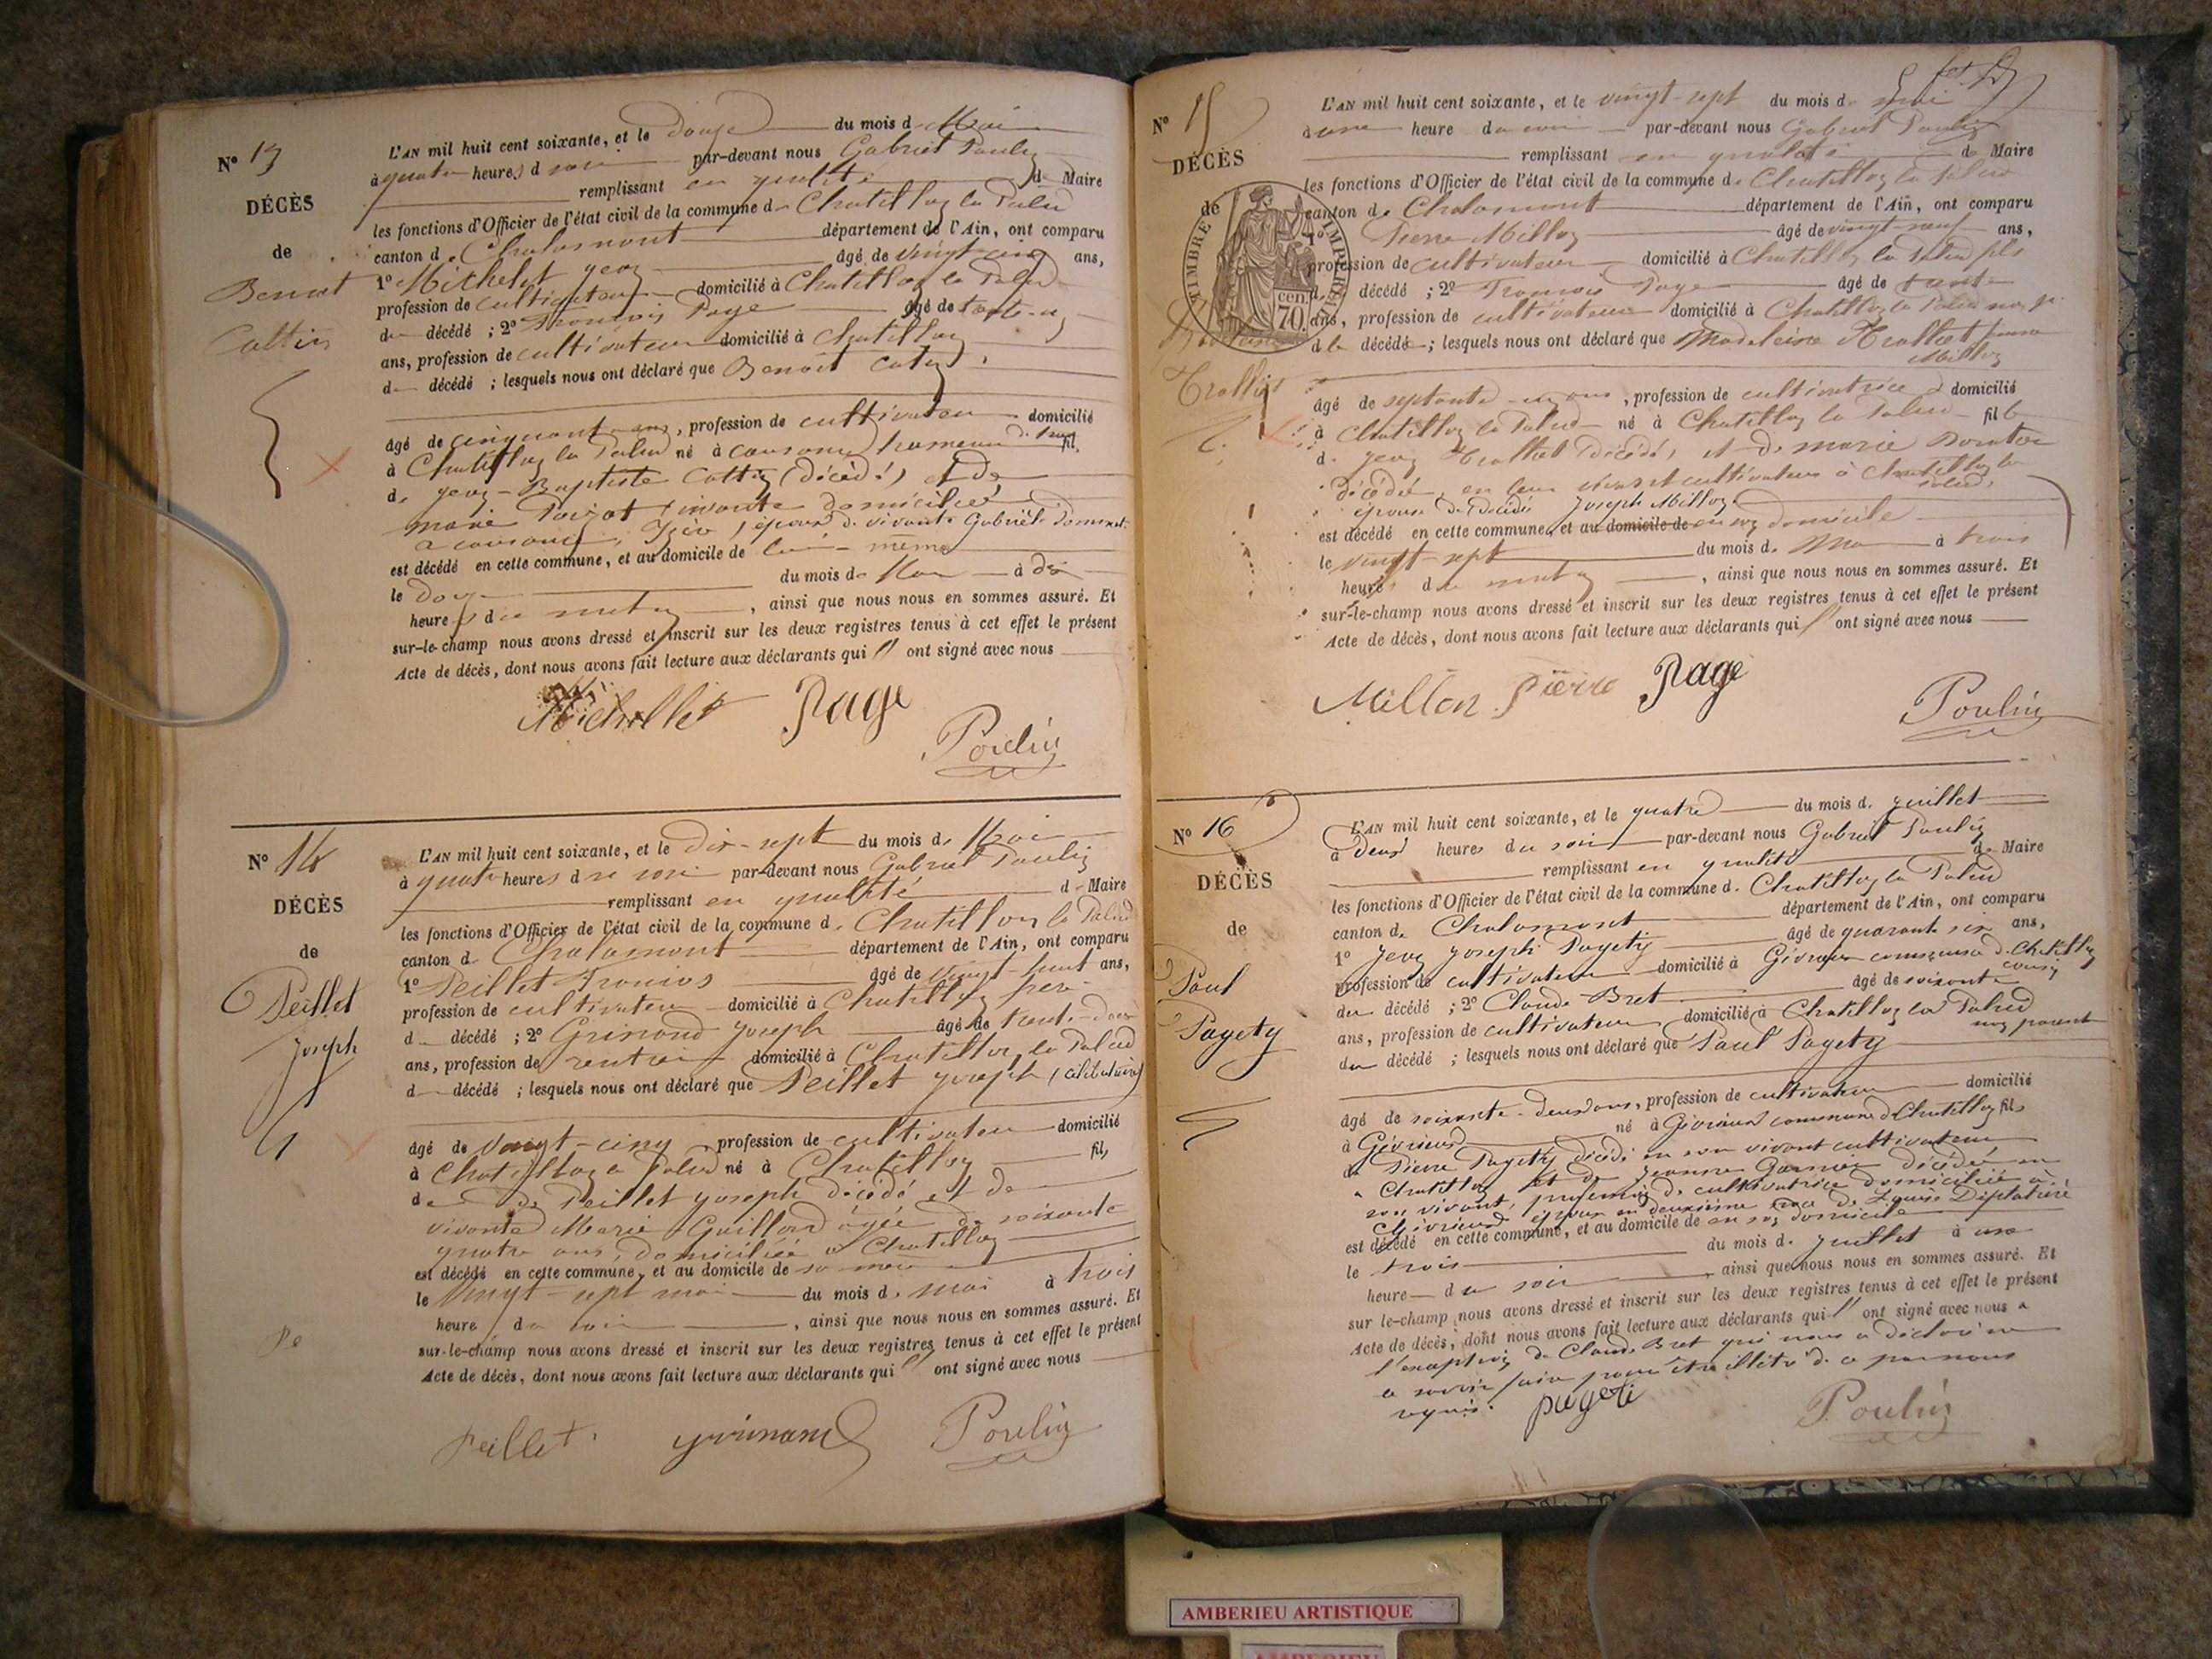 N° 13
DÉCÈS
de
Benoit
Cottin
L'AN mil huit cent soixante, et le douze du mois d Mai
à quatre heures d soir par-devant nous Gabriel Poulin
remplissant en qualité de Maire
les fonctions d'Officier de l'état civil de la commune de Chatillon la Palud
canton de Chalamont département de l'Ain, ont comparu
1° Michelet jean âgé de vingt cinq ans,
profession de cultivateur domicilié à Chatillon la Palud
du décédé ; 2° François Page âgé de trente-un
ans, profession de cultivateur domicilié à Chatillon
d décédé ; lesquels nous ont déclaré que Benoit Cotin
âgé de cinquante ans, profession de cultivateur domicilié
à Chatillon la Palud né à hameau de fil
de jean-Baptiste Cottin (décédé) et de
marie vivante domiciliée
à Isère, époux de vivante Gabrièle
est décédé en cette commune, et au domicile de lui-même
le douze du mois de Mai à dix
heures du matin, ainsi que nous nous en sommes assuré. Et
sur-le-champ nous avons dressé et inscrit sur les deux registres tenus à cet effet le présent
Acte de décès, dont nous avons fait lecture aux déclarants qui ont signé avec nous
Michellet Page
Poulin
N° 14
DÉCÈS
de
Peillet
joseph
L'AN mil huit cent soixante, et le dix-sept du mois de Mai
à quatre heures du soir par-devant nous Gabriel Poulin
remplissant en qualité de Maire
les fonctions d'Officier de l'état civil de la commune de Chatillon la Palud
canton de Chalamont département de l'Ain, ont comparu
1° Peillet François âgé de vingt-huit ans,
profession de cultivateur domicilié à Chatillon frère
d décédé ; 2° Grinand joseph âgé de trente-deux
ans, profession de rentier domicilié à Chatillon la Palud
d décédé ; lesquels nous ont déclaré que Peillet joseph (célibataire)
âgé de vingt-cinq profession de cultivateur domicilié
à Chatillon la Palud né à Chatillon fils
de Peillet joseph décédé et de
vivante Marie Guillon âgée de soixante
quatre ans, domiciliée à Chatillon
est décédé en cette commune, et au domicile de sa mère
le vingt-sept mai du mois de mai à trois
heure du soir, ainsi que nous nous en sommes assuré. Et
sur-le-champ nous avons dressé et inscrit sur les deux registres tenus à cet effet le présent
Acte de décès, dont nous avons fait lecture aux déclarants qui ont signé avec nous
Pe
Peillet grinand Poulin
N° 15
DÉCÈS
de
TIMBRE IMPÉRIAL
70 cen.
Trolliet
L'AN mil huit cent soixante, et le vingt-sept du mois de mai
à une heure du soir par-devant nous Gabriel Poulin
remplissant en qualité de Maire
les fonctions d'Officier de l'état civil de la commune de Chatillon la palud
canton de Chalamont département de l'Ain, ont comparu
1° Pierre Millon âgé de vingt-neuf ans,
profession de cultivateur domicilié à Chatillon la Palud fils
d décédé ; 2° François Page âgé de trente
ans, profession de cultivateur domicilié à Chatillon la Palud non p.
d la décédé ; lesquels nous ont déclaré que Madeleine Trolliet femme
Millon
âgé de septante-un ans, profession de cultivatrice domicilié
à Chatillon la Palud né à Chatillon la Palud fille
de jean Trolliet décédé, et de marie
décédée, en leur vivant cultivateurs à Chatillon la
palud,
épouse de décédé Joseph Millon
est décédé en cette commune, et au domicile de en son domicile
le vingt-sept du mois de Mai à trois
heures du matin, ainsi que nous nous en sommes assuré. Et
sur-le-champ nous avons dressé et inscrit sur les deux registres tenus à cet effet le présent
Acte de décès, dont nous avons fait lecture aux déclarants qui ont signé avec nous
Millon pierre Page
Poulin
N° 16
DÉCÈS
de
Paul
Pagety
L'AN mil huit cent soixante, et le quatre du mois de juillet
à deux heures du soir par-devant nous Gabriel Poulin
remplissant en qualité de Maire
les fonctions d'Officier de l'état civil de la commune de Chatillon la Palud
canton de Chalamont département de l'Ain, ont comparu
1° Jean joseph Pagety âgé de quarante six ans,
profession de cultivateur domicilié à Givrieux commune de Chatillon
cousin
du décédé ; 2° Claude Bret âgé de soixante
ans, profession de cultivateur domicilié à Chatillon la Palud
non parent
du décédé ; lesquels nous ont déclaré que Paul Pagety
âgé de soixante-deux ans, profession de cultivateur domicilié
à Gévrieux né à Gévrieux commune de Chatillon fils
de Pierre Pagety décédé en son vivant cultivateur
à Chatillon et de Jeanne Garnier décédée en
son vivant, profession de cultivatrice domiciliée à
Gévrieux, époux en deuxième de Louise Déplatière
est décédé en cette commune, et au domicile de en son domicile
le trois du mois de juillet à une
heure du soir, ainsi que nous nous en sommes assuré. Et
sur le-champ nous avons dressé et inscrit sur les deux registres tenus à cet effet le présent
Acte de décès, dont nous avons fait lecture aux déclarants qui ont signé avec nous a
l'exception de Claude Bret qui nous a déclaré ne
le savoir faire pour être illétré de ce par nous
requis.
pageti Poulin
AMBERIEU ARTISTIQUE
AMBERIEU